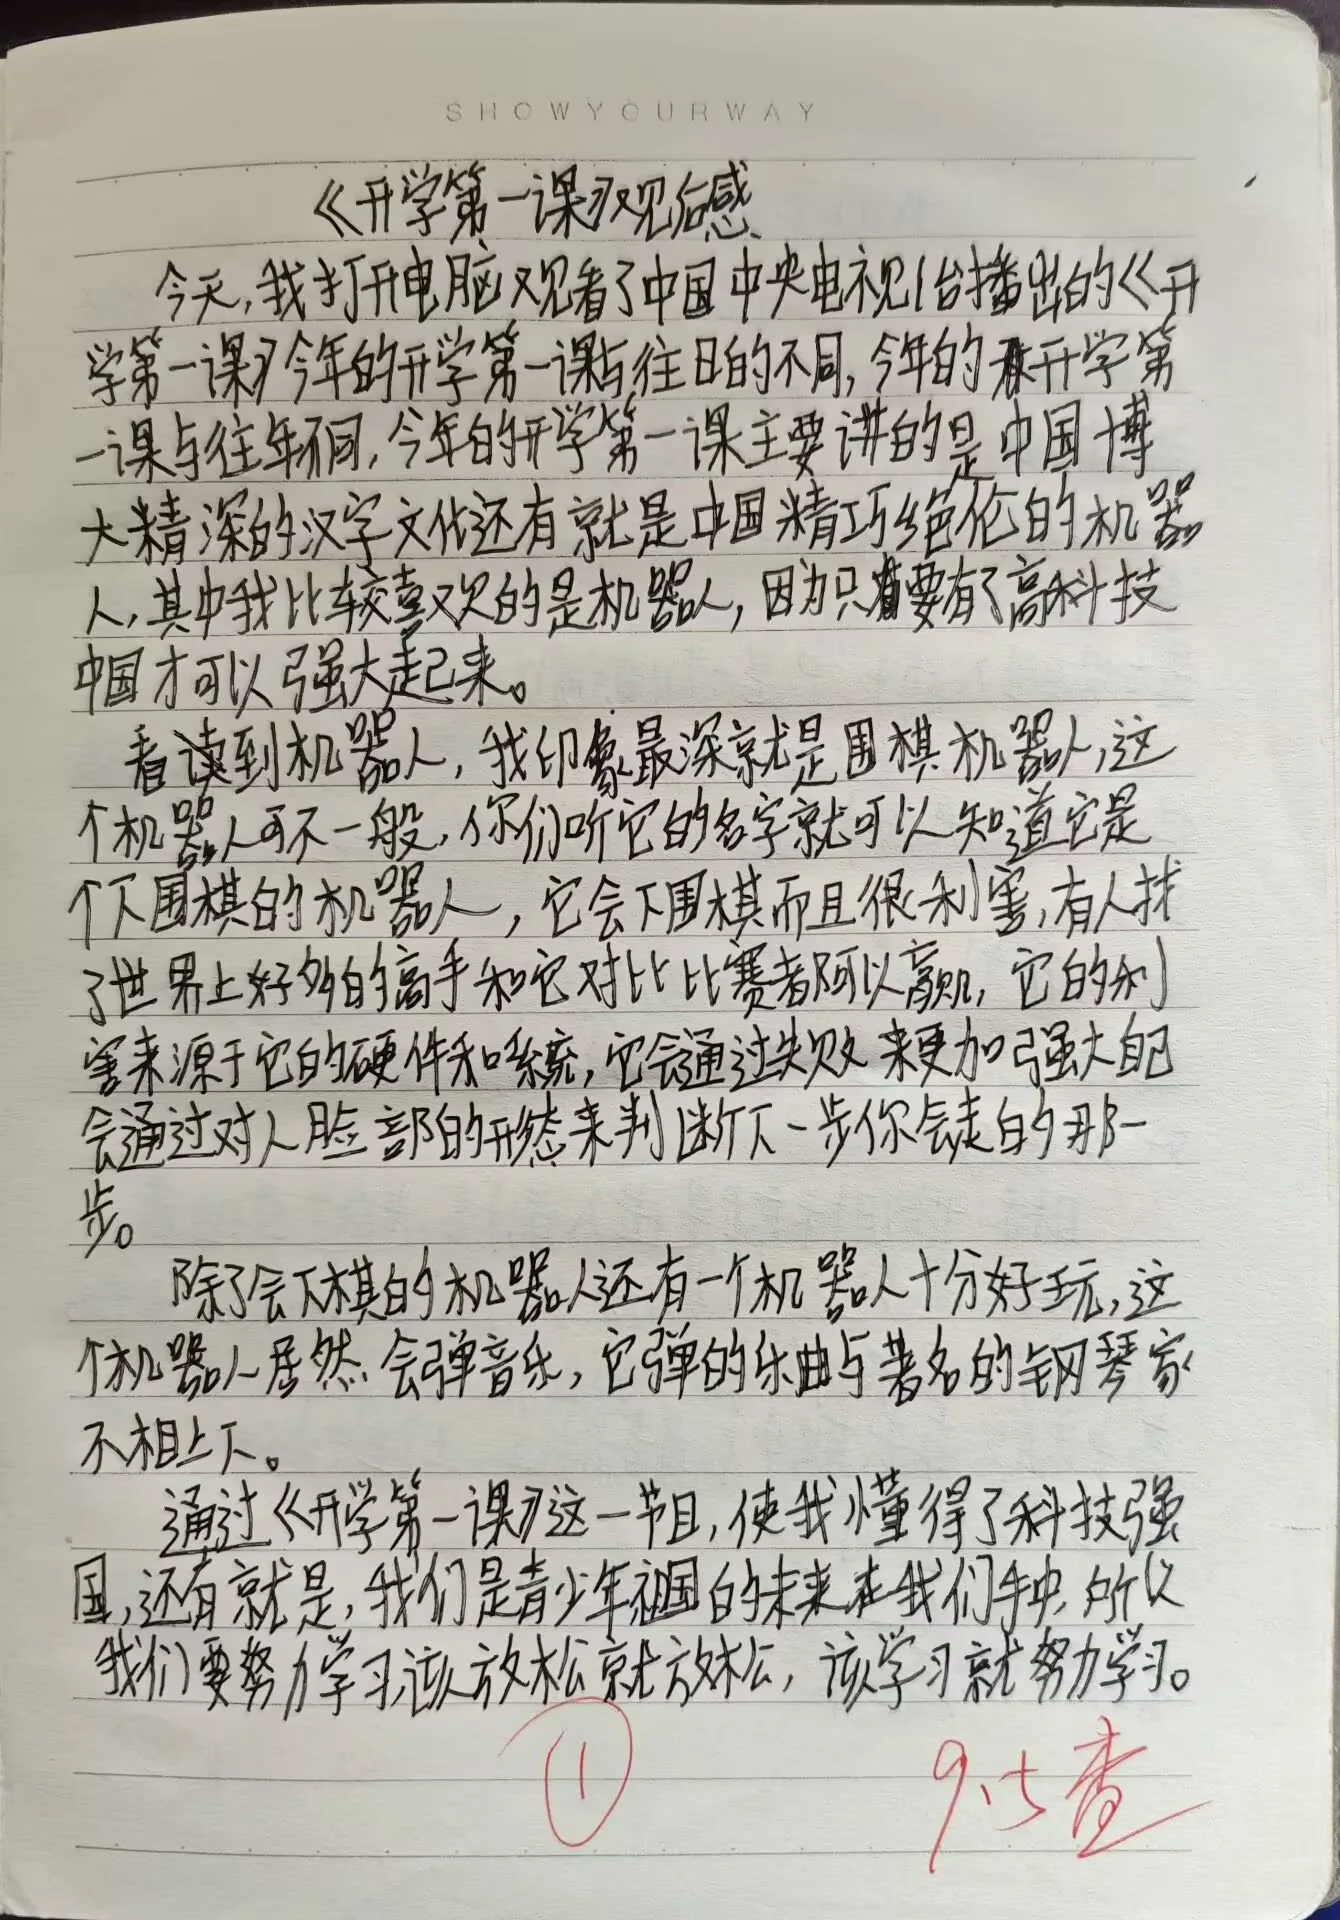 SHOWYOURWAY
《开学第一课》观后感
今天,我打开电脑观看了中国中央电视1台播出的《开
学第一课》今年的开学第一课与往日的不同,今年的开学第
一课与往年不同,今年的开学第一课主要讲的是中国博
大精深的汉字文化还有就是中国精巧绝伦的机器
人,其中我比较喜欢的是机器人,因为只要有了高科技
中国才可以强大起来。
看读到机器人,我印象最深就是围棋机器人,这
个机器人可不一般,你们听它的名字就可以知道它是
个下围棋的机器人,它会下围棋而且很利害,有人找
了世界上好多的高手和它对比比赛者阿以赢,它的利
害来源于它的硬件和系统,它会通过失败来更加强大自己
会通过对人脸部的形态来判断下一步你会走的那一
步。
除了会下棋的机器人还有一个机器人十分好玩,这
个机器人居然会弹音乐,它弹的乐曲与著名的钢琴家
不相上下。
通过《开学第一课》这一节目,使我懂得了科技强
国,还有就是,我们是青少年祖国的未来在我们手中,所以
我们要努力学习,该放松就放松,该学习就努力学习。
①
9.5查